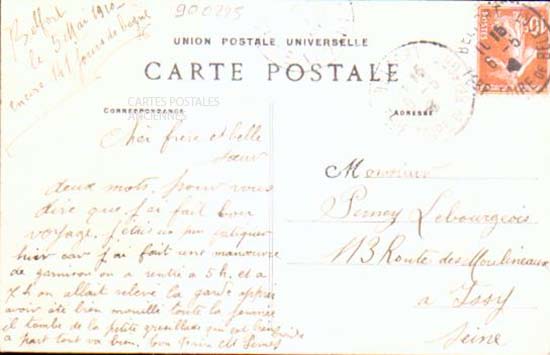 Belfort
le 5 Mai 1910
encore 141 jours de
900295
UNION POSTALE UNIVERSELLE
CARTE POSTALE
CARTES POSTALES
ANCIENNES
CORRESPONDANCE
ADRESSE
Cher frère et belle
sœur
deux mots pour vous
dire que j'ai fait bon
voyage, j'étais un peu fatiguer
hier car j'ai fait une manœuvre
de garnison on a rentré a 5 h. et a
7 h on allait relevé la garde après
avoir été bien mouillé toute la journée
il tombe de la petite qui est bien
a part tout va bien.
Monsieur
Lebourgeois
113 Route des Moulineaux
a Issy
Seine